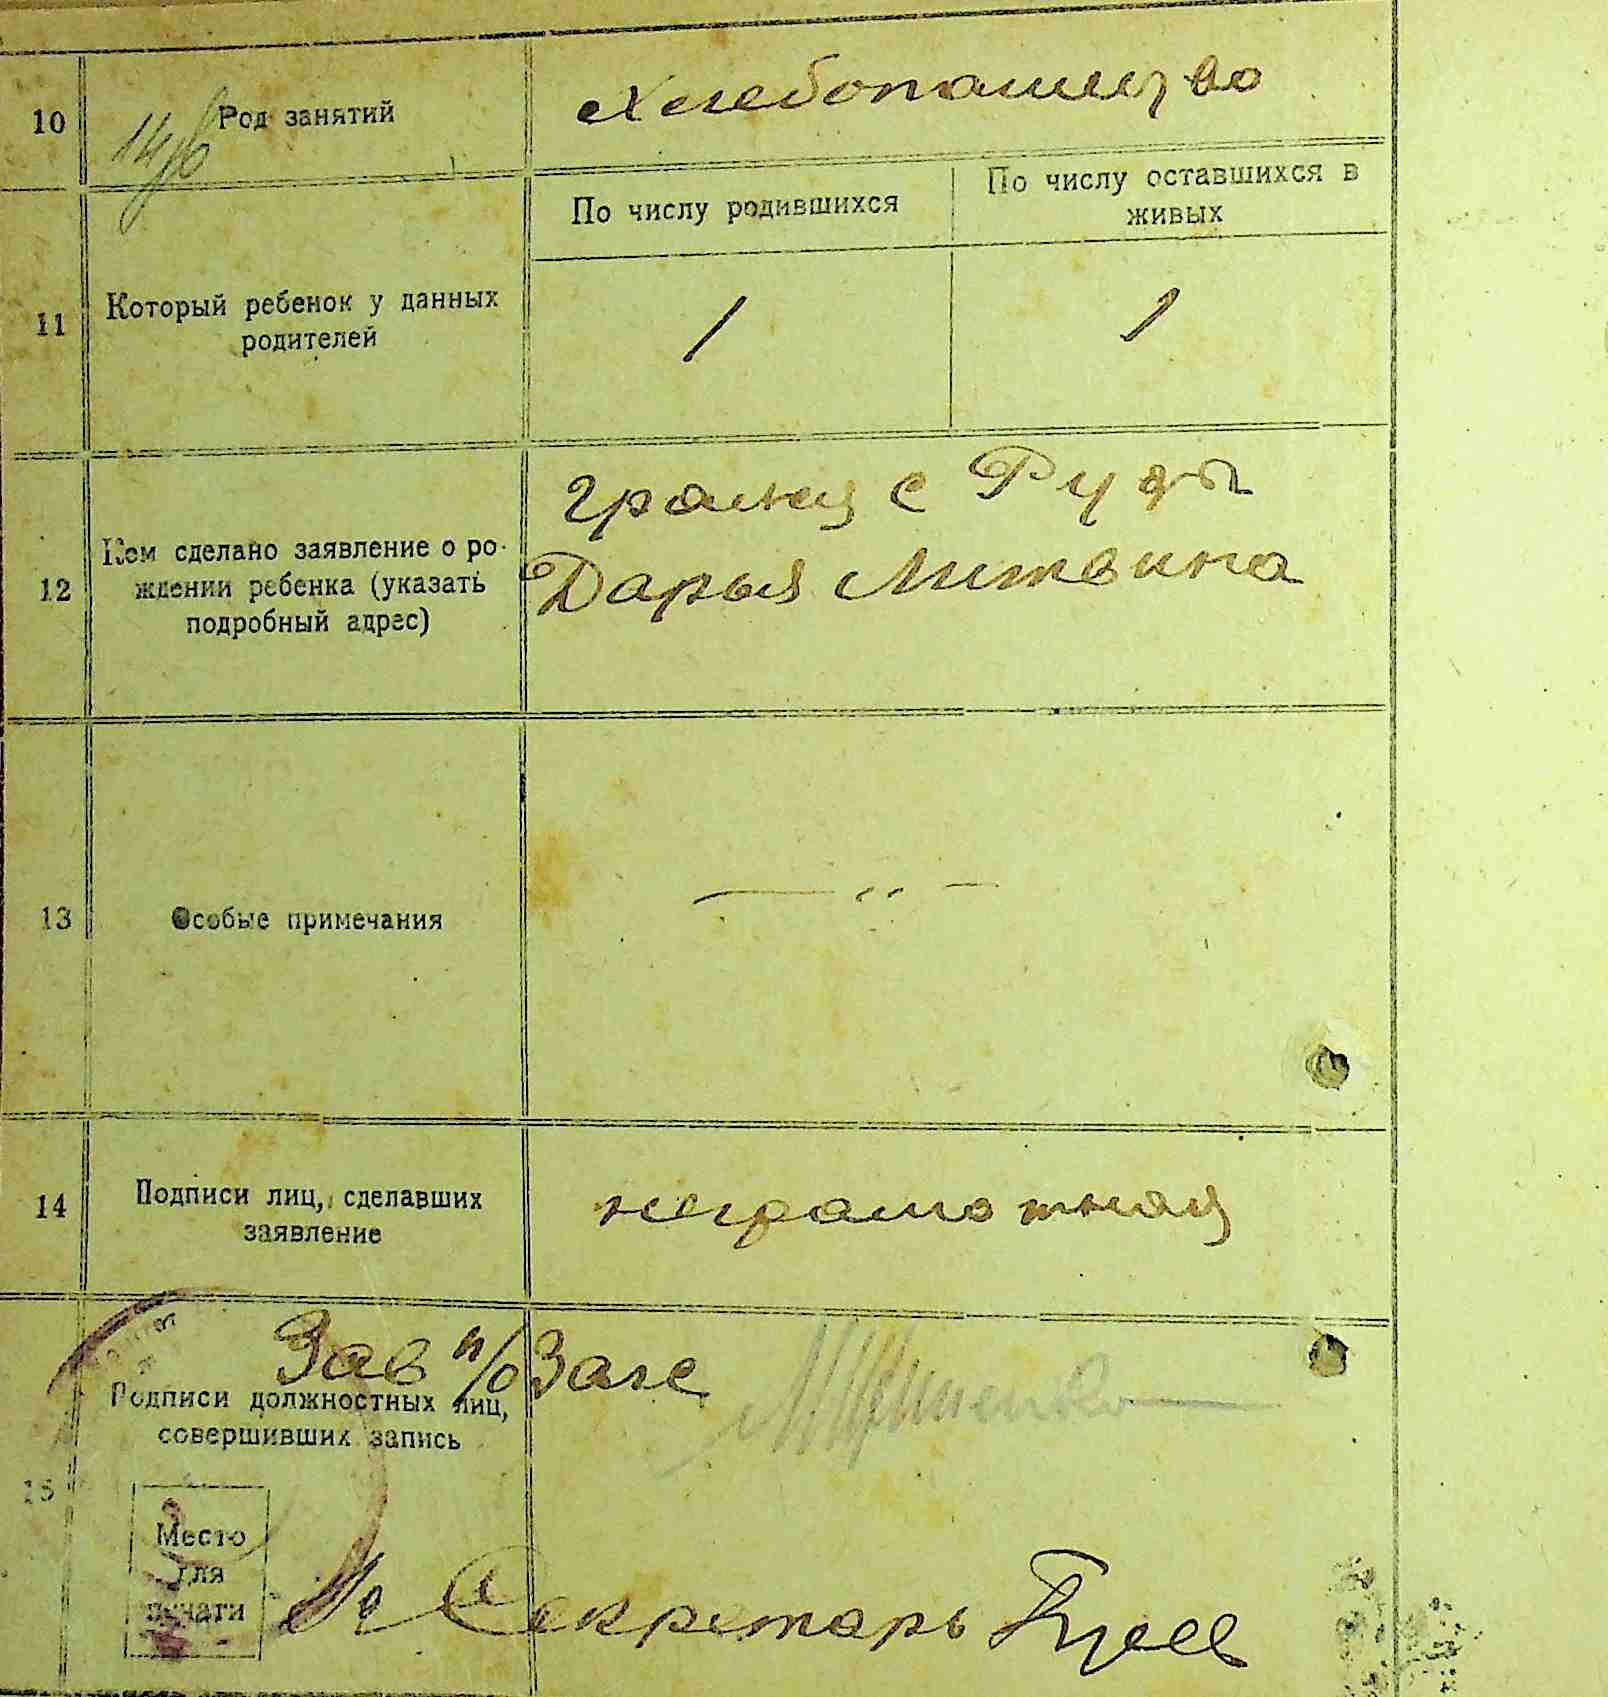 10
Род занятий
Хлебопашество
11
Который ребенок у данных
родителей
По числу родившихся
По числу оставшихся в
живых
1
1
12
Кем сделано заявление о ро-
ждении ребенка (указать
подробный адрес)
с Руды
Дарья Литвина
13
Особые примечания
— " —
14
Подписи лиц, сделавших
заявление
неграмотная
15
Зав п/о Загс
Подписи должностных лиц,
совершивших запись
Место
для
печати
Секретарь